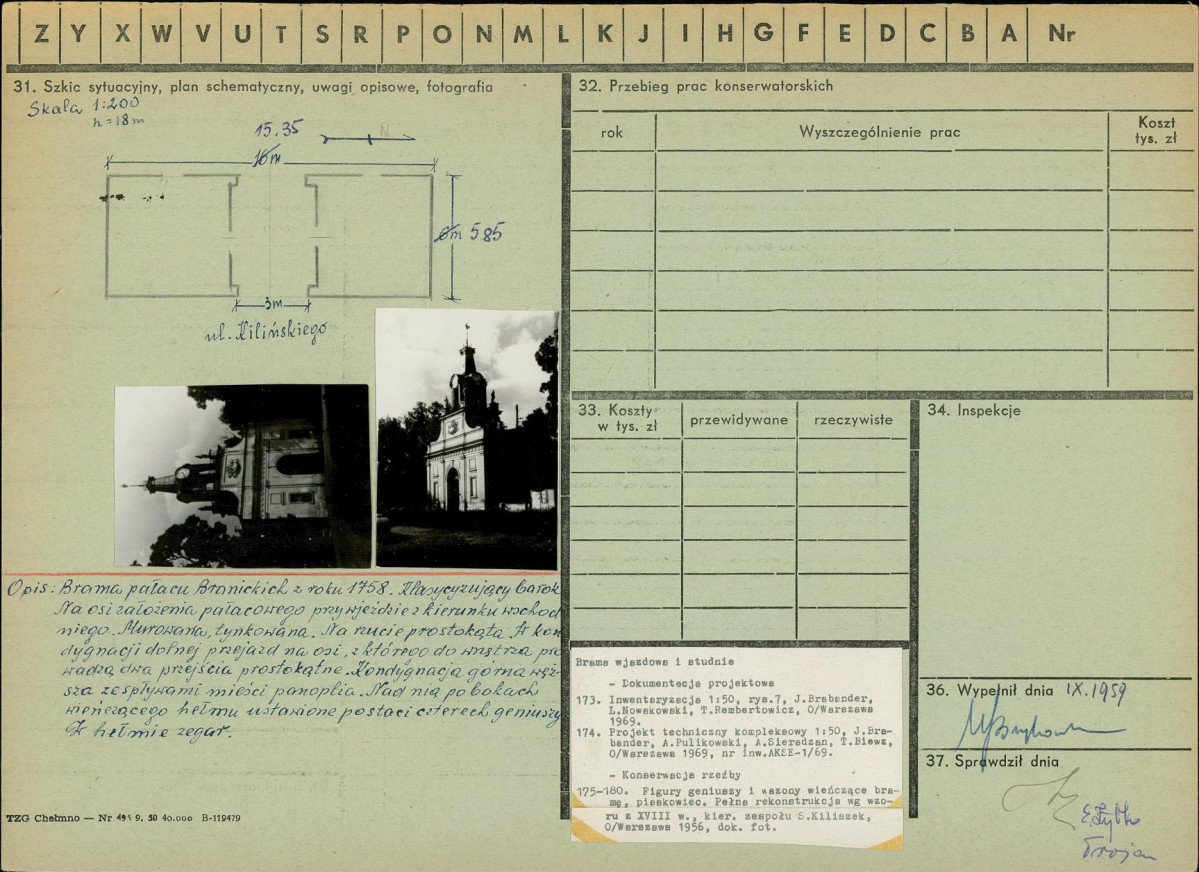 Z Y X W V U T S R P O N M L K J I H G F E D C B A Nr
31. Szkic sytuacyjny, plan schematyczny, uwagi opisowe, fotografia
Skala 1:200
h = 18 m
15.35
N
16 m
6 m 5.85
3 m
ul. Kilińskiego
Opis: Brama pałacu Branickich z roku 1758. Klasycyzujący barok
Na osi założenia pałacowego przy wjeździe z kierunku wschod
niego. Murowana, tynkowana. Na rzucie prostokąta. W kon
dygnacji dolnej przejazd na osi, z którego do wnętrza pro
wadzą dwa przejścia prostokątne. Kondygnacja górna węż-
sza ze spływami mieści panoplia. Nad nią po bokach
wieńczącego hełmu ustawione postaci czterech geniuszy
W hełmie zegar.
TZG Chełmno — Nr 495 9. 50 40.000 B-119479
32. Przebieg prac konserwatorskich
rok
Wyszczególnienie prac
Koszt
tys. zł
33. Koszty
w tys. zł
przewidywane
rzeczywiste
34. Inspekcje
Brama wjazdowa i studnie
- Dokumentacja projektowa
173. Inwentaryzacja 1:50, rys.7, J.Brabander,
L.Nowakowski, T.Rembertowicz, O/Warszawa
1969.
174. Projekt techniczny kompleksowy 1:50, J.Bra-
bander, A.Pulikowski, A.Sieradzan, T.Biewz,
O/Warszawa 1969, nr inw.AKSE-1/69.
- Konserwacja rzeźby
175-180. Figury geniuszy i wazony wieńczące bra-
mę, piaskowiec. Pełna rekonstrukcja wg wzo-
ru z XVIII w., kier. zespołu S.Kiliszek,
O/Warszawa 1956, dok. fot.
36. Wypełnił dnia IX.1959
37. Sprawdził dnia